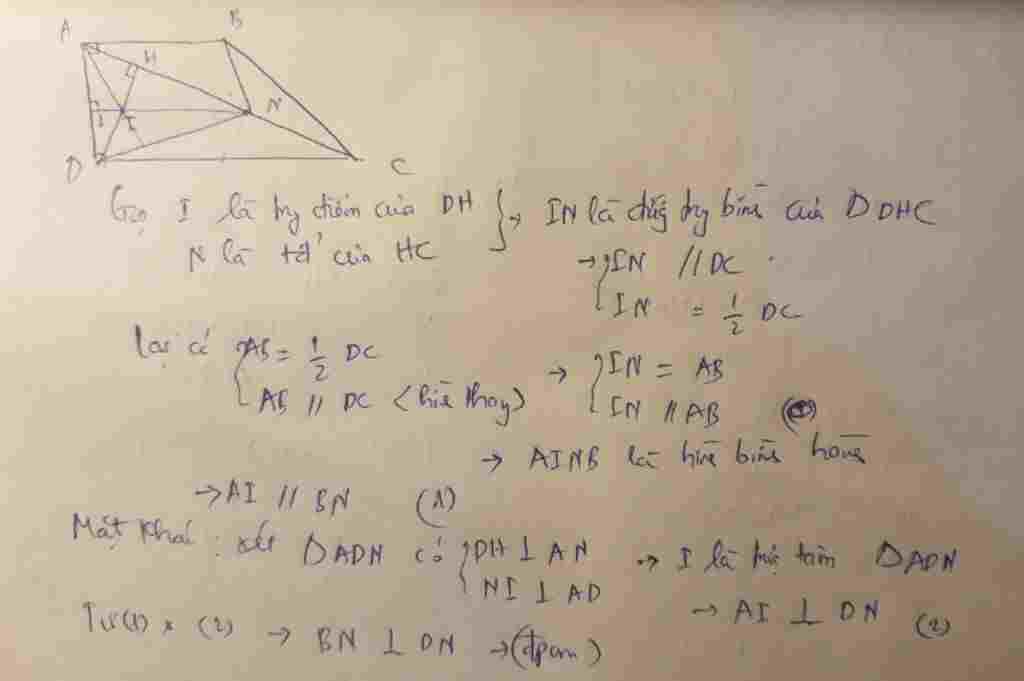 A B
H
I N
D C
Gọi I là trg điểm của DH } → IN là đường trg bình của Δ DHC
N là tđ' của HC
→ { IN // DC
IN = 1/2 DC
Lại có { AB = 1/2 DC → { IN = AB
AB // DC (hình thang) IN // AB
→ AINB là hình bình hành
→ AI // BN (1)
Mặt khác : xét Δ ADN có { DH ⊥ AN → I là trực tâm Δ ADN
NI ⊥ AD
→ AI ⊥ DN (2)
Từ (1) x (2) → BN ⊥ DN → (đpcm)